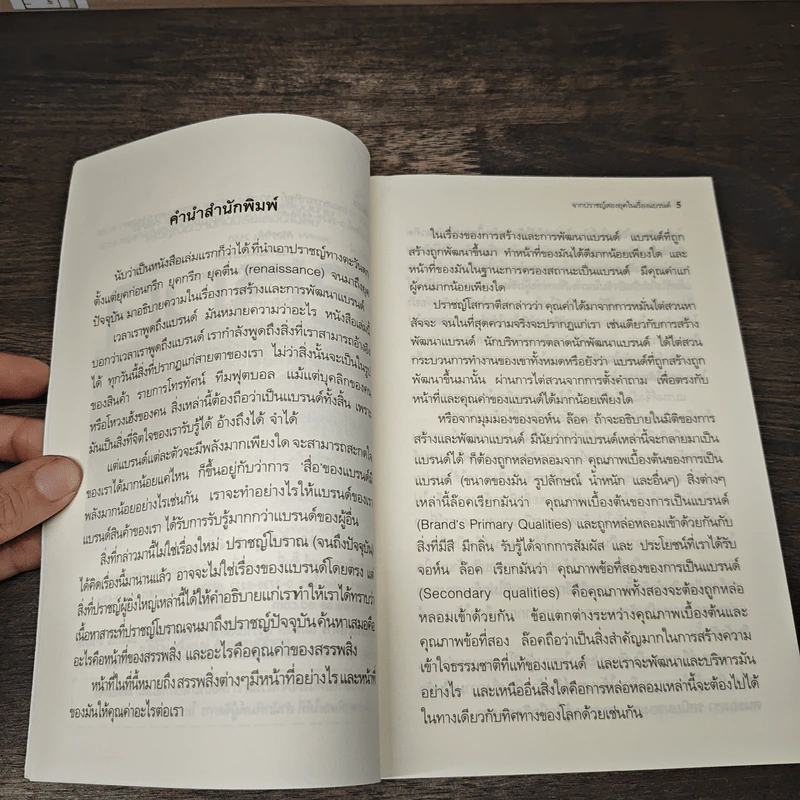 คำนำสำนักพิมพ์
นับว่าเป็นหนังสือเล่มแรกก็ว่าได้ ที่นำเอาปราชญ์ทางตะวันตก
ตั้งแต่ยุคก่อนกรีก ยุคกรีก ยุคตื่น (renaissance) จนมาถึงยุค
ปัจจุบัน มาอธิบายความในเรื่องการสร้างและการพัฒนาแบรนด์
เวลาเราพูดถึงแบรนด์ มันหมายความว่าอะไร หนังสือเล่มนี้
บอกว่าเวลาเราพูดถึงแบรนด์ เรากำลังพูดถึงสิ่งที่เราสามารถอ้างถึง
ได้ ทุกวันนี้สิ่งที่ปรากฏแก่สายตาของเรา ไม่ว่าสิ่งนั้นจะเป็นในรูป
ของสินค้า รายการโทรทัศน์ ทีมฟุตบอล แม้แต่บุคลิกของคน
หรือโหวงเฮ้งของคน สิ่งเหล่านี้ต้องถือว่าเป็นแบรนด์ทั้งสิ้น เพราะ
มันเป็นสิ่งที่จิตใจของเรารับรู้ได้ อ้างถึงได้ จำได้
แต่แบรนด์แต่ละตัวจะมีพลังมากเพียงใด จะสามารถสะกดใจ
ของเราได้มากน้อยแค่ไหน ก็ขึ้นอยู่กับว่าการ 'สื่อ' ของแบรนด์มี
พลังมากน้อยอย่างไรเช่นกัน เราจะทำอย่างไรให้แบรนด์ของเรา
แบรนด์สินค้าของเรา ได้รับการรับรู้มากกว่าแบรนด์ของผู้อื่น
สิ่งที่กล่าวมานี้ไม่ใช่เรื่องใหม่ ปราชญ์โบราณ (จนถึงปัจจุบัน)
ได้คิดเรื่องนี้มานานแล้ว อาจจะไม่ใช่เรื่องของแบรนด์โดยตรง แต่
สิ่งที่ปราชญ์ผู้ยิ่งใหญ่เหล่านี้ได้ให้คำอธิบายแก่เราทำให้เราได้ทราบว่า
เนื้อหาสาระที่ปราชญ์โบราณจนมาถึงปราชญ์ปัจจุบัน ค้นหาเสมอคือ
อะไรคือหน้าที่ของสรรพสิ่ง และอะไรคือคุณค่าของสรรพสิ่ง
หน้าที่ในที่นี้หมายถึง สรรพสิ่งต่างๆมีหน้าที่อย่างไร และหน้าที่
ของมันให้คุณค่าอะไรต่อเรา
จากปราชญ์สองยุคในเรื่องแบรนด์ 5
ในเรื่องของการสร้างและการพัฒนาแบรนด์ แบรนด์ที่ถูก
สร้างถูกพัฒนาขึ้นมา ทำหน้าที่ของมันได้ดีมากน้อยเพียงใด และ
หน้าที่ของมันในฐานะการครองสถานะเป็นแบรนด์ มีคุณค่าแก่
ผู้คนมากน้อยเพียงใด
ปราชญ์โสกราตีสกล่าวว่า คุณค่าได้มาจากการหมั่นไต่สวนหา
สัจจะ จนในที่สุดความจริงจะปรากฏแก่เรา เช่นเดียวกับการสร้าง
พัฒนาแบรนด์ นักบริหารการตลาดนักพัฒนาแบรนด์ ได้ไต่สวน
กระบวนการทำงานของเขาทั้งหมดหรือยังว่า แบรนด์ที่ถูกสร้างถูก
พัฒนาขึ้นมานั้น ผ่านการไต่สวนจากการตั้งคำถาม เพื่อตรงกับ
หน้าที่และคุณค่าของแบรนด์ได้มากน้อยเพียงใด
หรือจากมุมมองของจอห์น ล๊อค ถ้าจะอธิบายในมิติของการ
สร้างและพัฒนาแบรนด์ มีนัยว่ากว่าแบรนด์เหล่านี้จะกลายมาเป็น
แบรนด์ได้ ก็ต้องถูกหล่อหลอมจาก คุณภาพเบื้องต้นของการเป็น
แบรนด์ (ขนาดของมัน รูปลักษณ์ น้ำหนัก และอื่นๆ) สิ่งต่างๆ
เหล่านี้ล๊อคเรียกมันว่า คุณภาพเบื้องต้นของการเป็นแบรนด์
(Brand's Primary Qualities) และถูกหล่อหลอมเข้าด้วยกันกับ
สิ่งที่มีสี มีกลิ่น รับรู้ได้จากการสัมผัส และ ประโยชน์ที่เราได้รับ
จอห์น ล๊อค เรียกมันว่า คุณภาพข้อที่สองของการเป็นแบรนด์
(Secondary qualities) คือคุณภาพทั้งสองจะต้องถูกหล่อ
หลอมเข้าด้วยกัน ข้อแตกต่างระหว่างคุณภาพเบื้องต้นและ
คุณภาพข้อที่สอง ล๊อคถือว่าเป็นสิ่งสำคัญมากในการสร้างความ
เข้าใจธรรมชาติที่แท้ของแบรนด์ และเราจะพัฒนาและบริหารมัน
อย่างไร และเหนืออื่นสิ่งใดคือการหล่อหลอมเหล่านี้จะต้องไปได้
ในทางเดียวกับทิศทางของโลกด้วยเช่นกัน